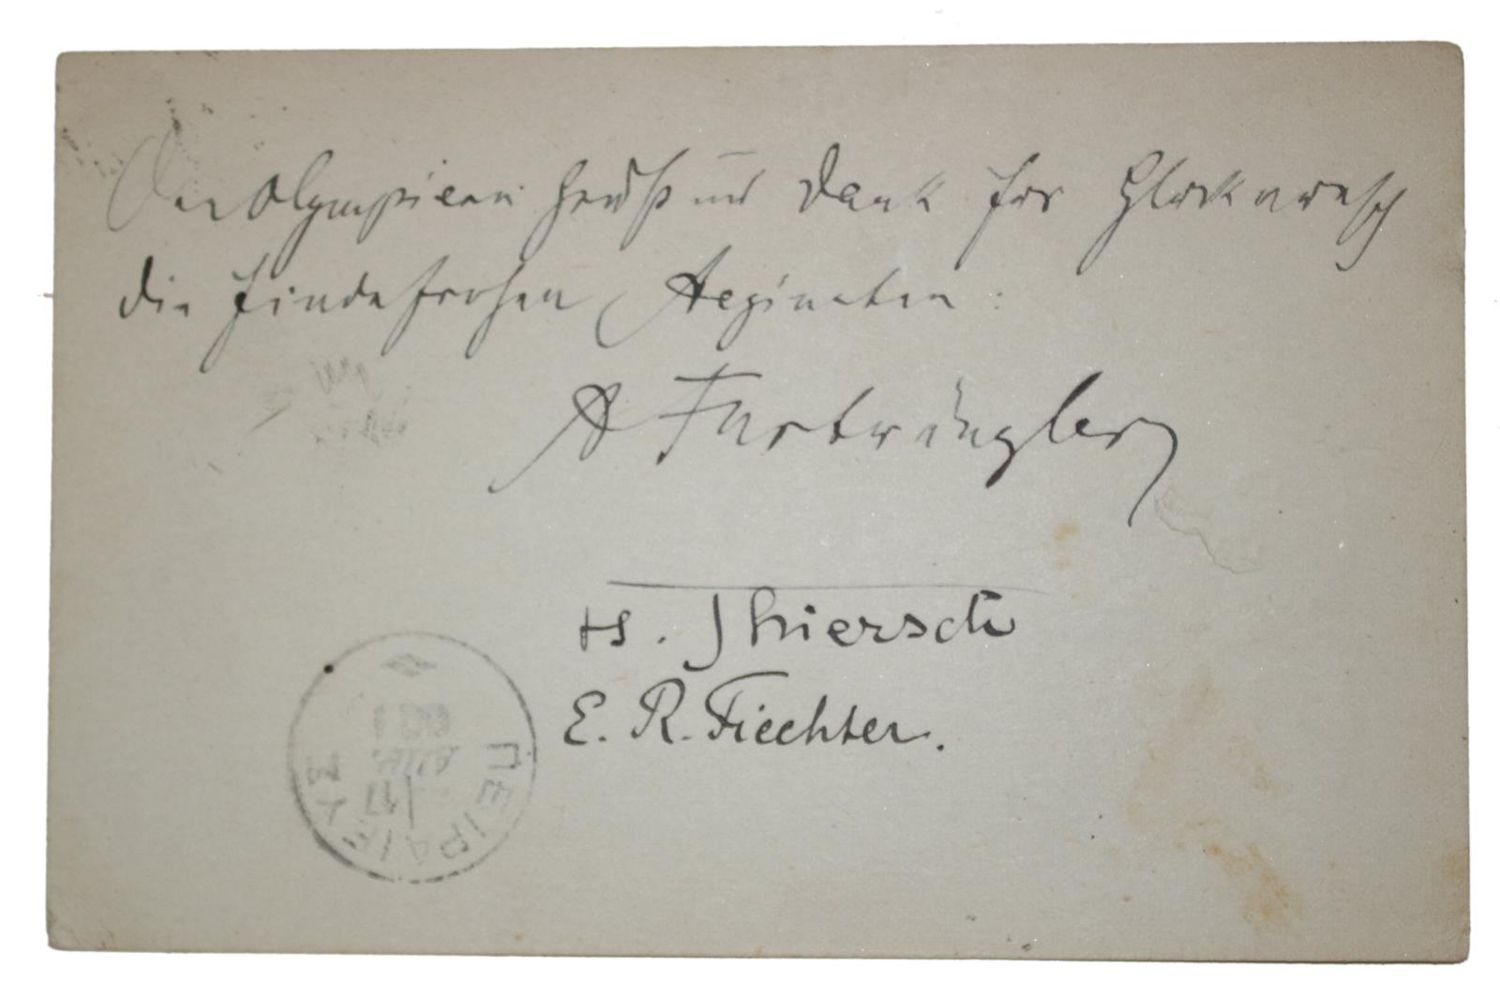 Den Olympiern Gruß und Dank für Glückwunsch
die findefrohen Aegineten:
A Furtwängler
H. Thiersch
E. R. Fiechter.
ΠΕΙΡΑΙΕΥΣ
17